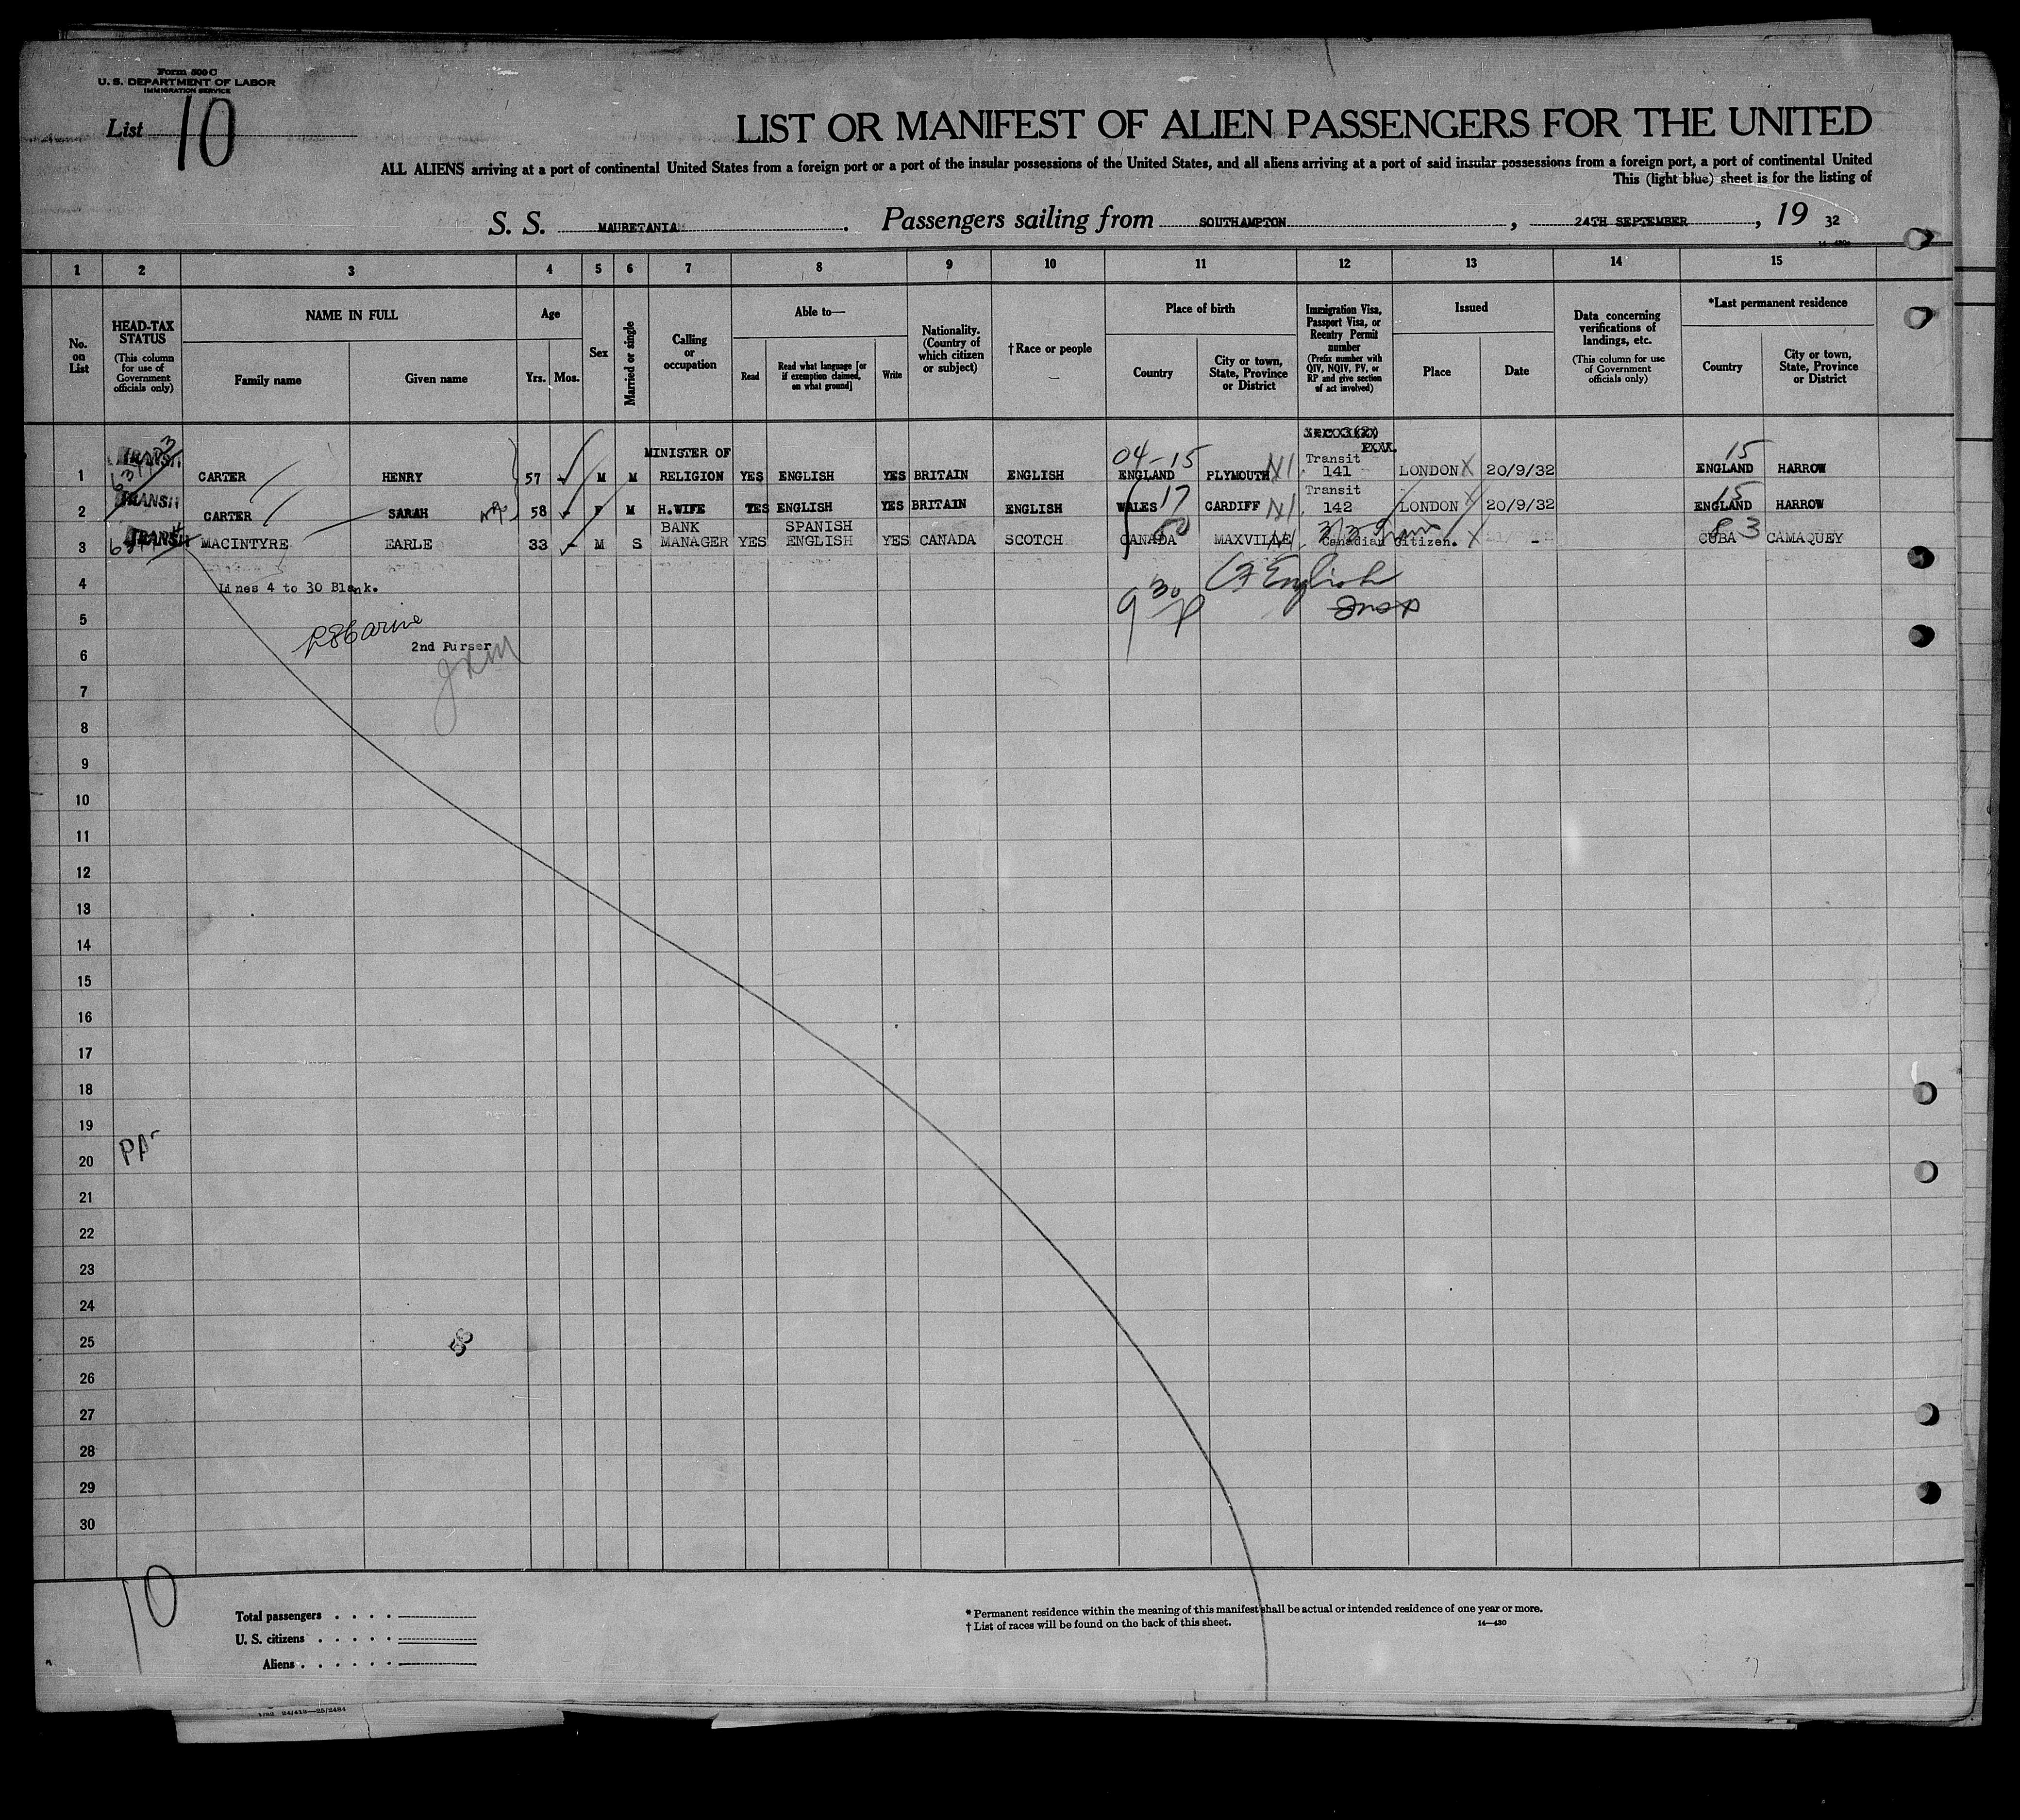 Form 500 C
U. S. DEPARTMENT OF LABOR
IMMIGRATION SERVICE
List 10
LIST OR MANIFEST OF ALIEN PASSENGERS FOR THE UNITED
ALL ALIENS arriving at a port of continental United States from a foreign port or a port of the insular possessions of the United States, and all aliens arriving at a port of said insular possessions from a foreign port, a port of continental United
This (light blue) sheet is for the listing of
S. S. MAURETANIA. Passengers sailing from SOUTHAMPTON, 24TH SEPTEMBER, 19 32
1 2 3 4 5 6 7 8 9 10 11 12 13 14 15
No. on List
HEAD-TAX STATUS (This column for use of Government officials only)
NAME IN FULL
Family name
Given name
Age
Yrs.
Mos.
Sex
Married or single
Calling or occupation
Able to—
Read
Read what language [or if exemption claimed, on what ground]
Write
Nationality. (Country of which citizen or subject)
†Race or people
Place of birth
Country
City or town, State, Province or District
Immigration Visa, Passport Visa, or Reentry Permit number (Prefix number with QIV, NQIV, PV, or RP and give section of act involved)
Issued
Place
Date
Data concerning verifications of landings, etc. (This column for use of Government officials only)
*Last permanent residence
Country
City or town, State, Province or District
04-15 15
1 TRANSIT CARTER HENRY 57 M M MINISTER OF RELIGION YES ENGLISH YES BRITAIN ENGLISH ENGLAND PLYMOUTH Transit 141 LONDON 20/9/32 ENGLAND HARROW
17 15
2 TRANSIT CARTER SARAH 58 F M H.WIFE YES ENGLISH YES BRITAIN ENGLISH WALES CARDIFF Transit 142 LONDON 20/9/32 ENGLAND HARROW
3 TRANSIT MACINTYRE EARLE 33 M S BANK MANAGER YES SPANISH ENGLISH YES CANADA SCOTCH CANADA MAXVILLE Canadian Citizen. CUBA 83 CAMAQUEY
4 Lines 4 to 30 Blank.
English
5 9 30
6 2nd Purser
7
8
9
10
11
12
13
14
15
16
17
18
19
20
21
22
23
24
25
26
27
28
29
30
10
Total passengers
U. S. citizens
Aliens
* Permanent residence within the meaning of this manifest shall be actual or intended residence of one year or more.
† List of races will be found on the back of this sheet.
14—430